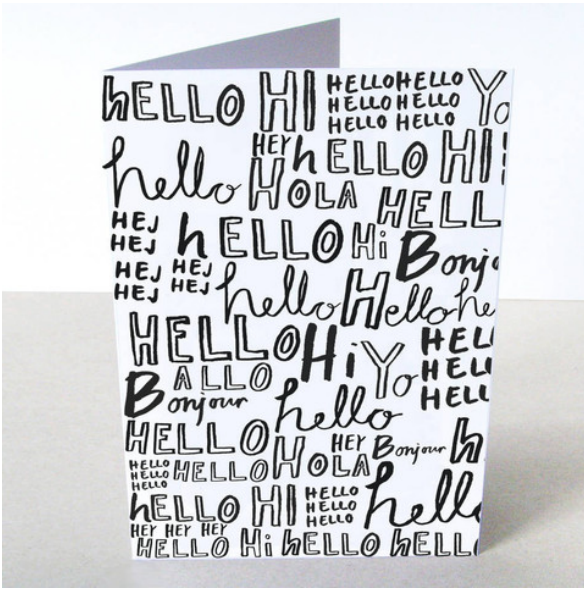 hELLO HI HELLO HELLO Yo
HELLO HELLO
HELLO HELLO
hello HEY hELLO HI!
HOLA HELL
HEJ hELLO Hi Bonj
HEJ
HEJ HEJ hello Hello he
HEJ HEJ
HELLO Hi Yo HELL
HELL
HELL
Bonjour ALLO hello
HELLO HOLA HEY Bonjour h
HELLO HELLO
HELLO
HELLO
hELLO HI HELLO hello
HELLO
HELLO
HEY HEY HEY
HELLO Hi hELLO hELL